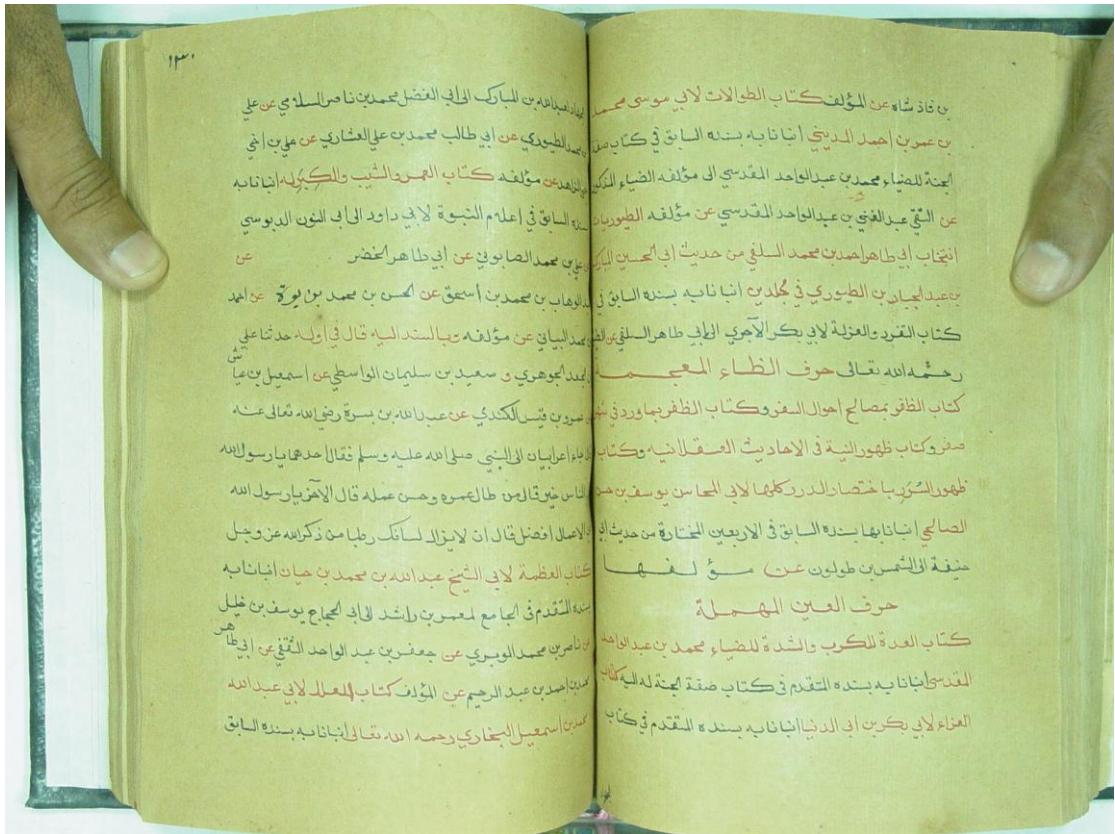 بن فاذشاه عن المؤلف كتاب الطوالات لابي موسى محمد
بن عمر بن احمد المديني أنبانا به بسنده السابق في كتاب صفة
الجنة للضياء محمد بن عبد الواحد المقدسي الى مؤلفه الضياء المذكور
عن التقي عبد الغني بن عبد الواحد المقدسي عن مؤلفه الطيوريات
انتخاب ابي طاهر احمد بن محمد السلفي من حديث ابي الحسين المبارك
بن عبد الجبار بن الطيوري في مجلدين انبانا به بسنده السابق في
كتاب التفرد والعزلة لابي بكر الآجري الى ابي طاهر السلفي عن
رحمه الله تعالى حرف الظاء المعجمة
كتاب الظفر بمصالح احوال السفر وكتاب الظفر بما ورد في
صفر وكتاب ظهور النية في الاحاديث العسقلانيه وكتاب
ظهور السرر باختصار الدرر كلها لابي المحاسن يوسف بن حسن
الصالحي انبانا بها بسنده السابق في الاربعين المختارة من حديث ابي
حنيفة الى الشمس بن طولون عن مؤلفها
حرف العين المهملة
كتاب العدة للكرب والشدة للضياء محمد بن عبد الواحد
المقدسي انبانا به بسنده المتقدم في كتاب صفة الجنة له اليه كتاب
العزاء لابي بكر بن ابي الدنيا انبانا به بسنده المتقدم في كتاب
١٣٠
لعبد الله بن المبارك الى ابي الفضل محمد بن ناصر السلامي عن علي
بن محمد الطيوري عن ابي طالب محمد بن علي العشاري عن علي بن اخي
الزاهد عن مؤلفه كتاب العمر والشيب والكبر له انبانا به
بسنده السابق في اعلام النبوة لابي داود الى ابي النون الدبوسي
علي بن محمد الصابوني عن ابي طاهر الخضر عن
عبد الوهاب بن محمد بن اسحق عن الحسن بن محمد بن يوة عن احمد
بن محمد البياني عن مؤلفه وبالسند اليه قال في اوله حدثنا علي
بن الجعد الجوهري و سعيد بن سليمان الواسطي عن اسمعيل بن عياش
عن عمرو بن قيس الكندي عن عبد الله بن بسرة رضي الله تعالى عنه
قال جاء اعرابيان الى النبي صلى الله عليه وسلم فقال احدهما يا رسول الله
اي الناس خير قال من طال عمره وحسن عمله قال الآخر يا رسول الله
اي الاعمال افضل قال ان لا يزال لسانك رطبا من ذكر الله عز وجل
كتاب العظمة لابي الشيخ عبد الله بن محمد بن حيان انبانا به
بسنده المتقدم في الجامع لمعمر بن راشد الى ابي الحجاج يوسف بن خليل
عن ناصر بن محمد الويري عن جعفر بن عبد الواحد الثقفي عن ابي طاهر
محمد بن احمد بن عبد الرحيم عن المؤلف كتاب العلل لابي عبد الله
محمد بن اسمعيل البخاري رحمه الله تعالى انبانا به بسنده السابق